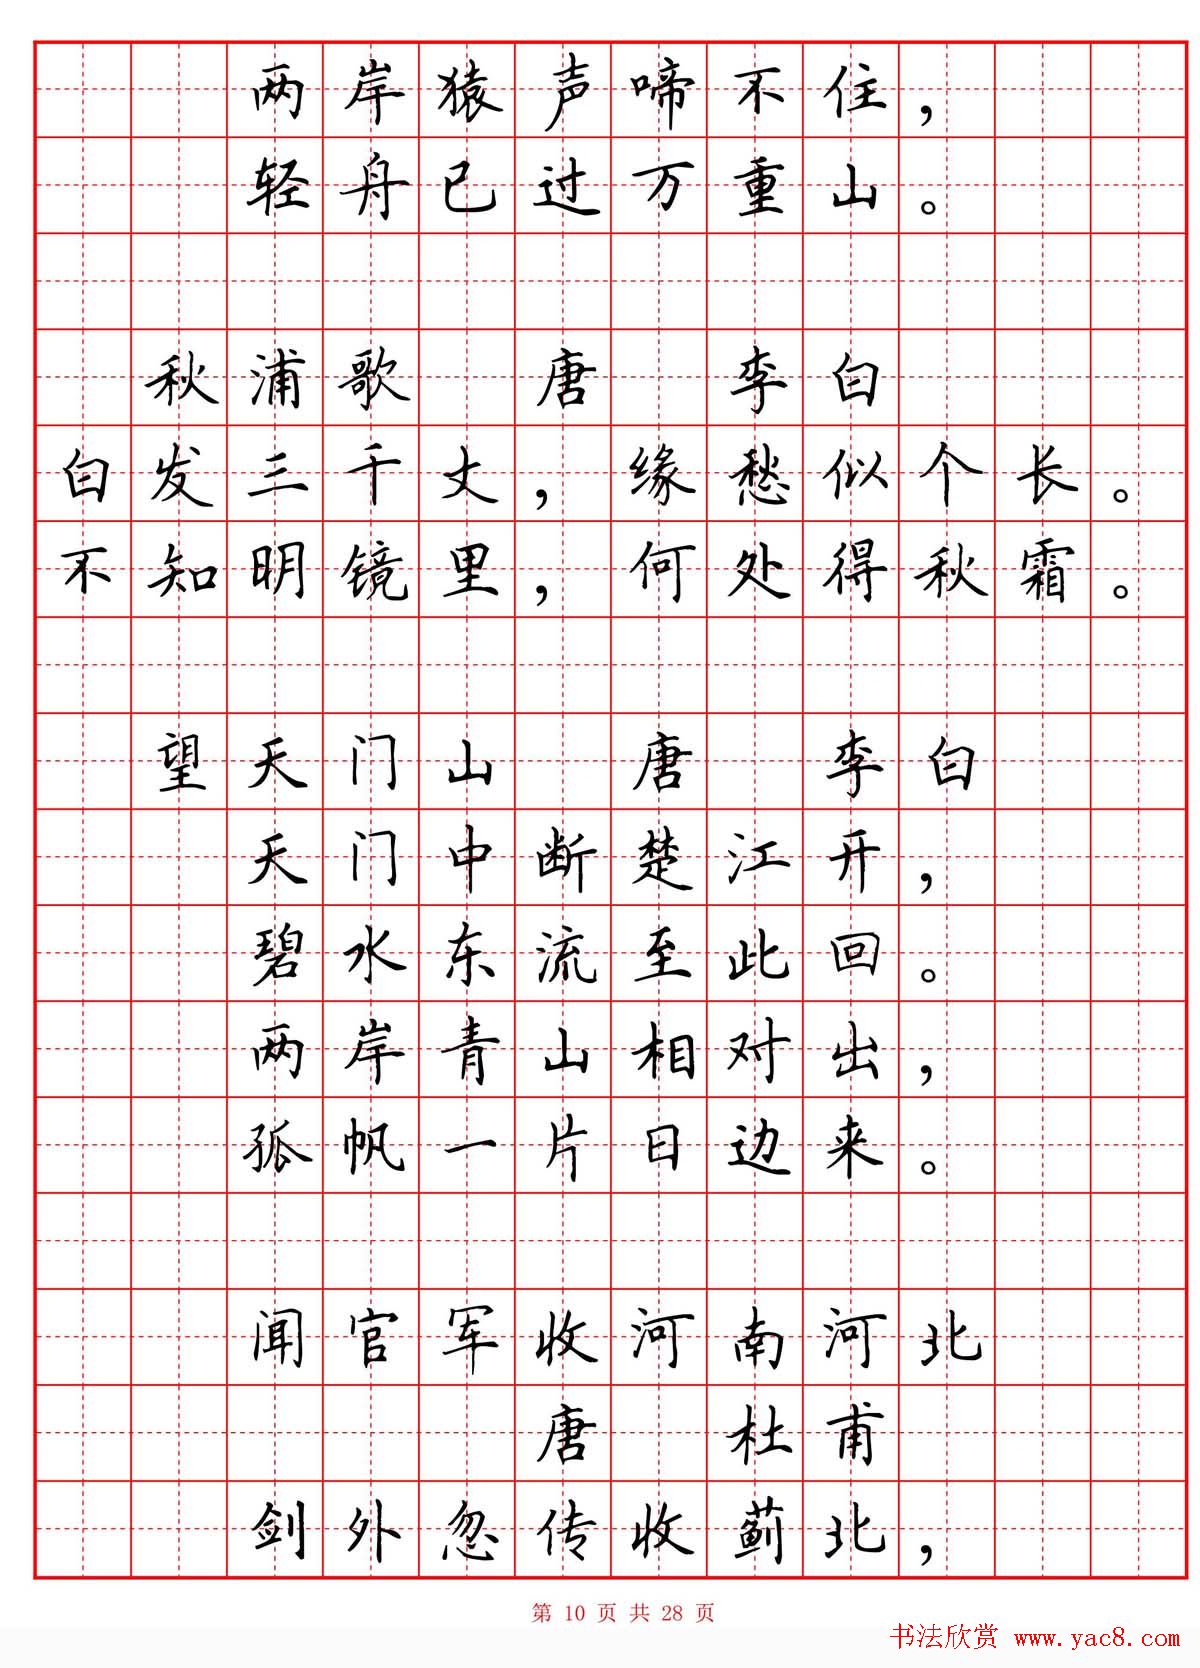 两岸猿声啼不住，
轻舟已过万重山。
秋浦歌 唐 李白
白发三千丈，缘愁似个长。
不知明镜里，何处得秋霜。
望天门山 唐 李白
天门中断楚江开，
碧水东流至此回。
两岸青山相对出，
孤帆一片日边来。
闻官军收河南河北
唐 杜甫
剑外忽传收蓟北，
第 10 页 共 28 页
书法欣赏 www.yac8.com